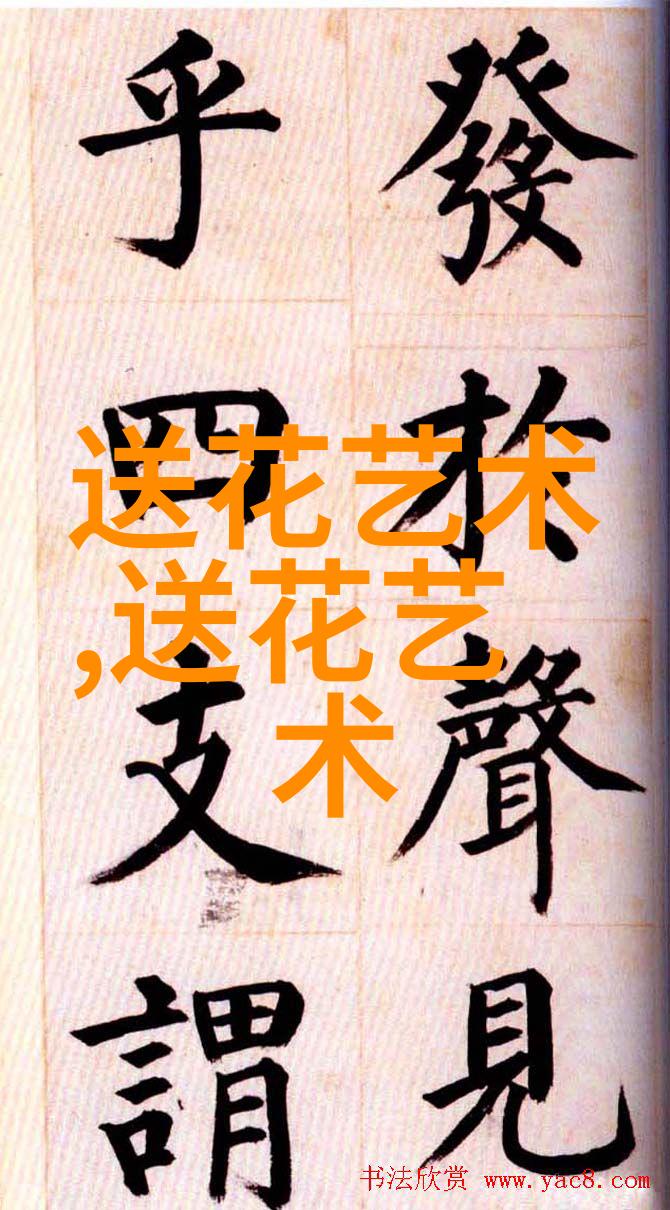 發於聲見
乎四支謂
送花艺术
,送花艺
术
书法欣赏 www.yac8.com